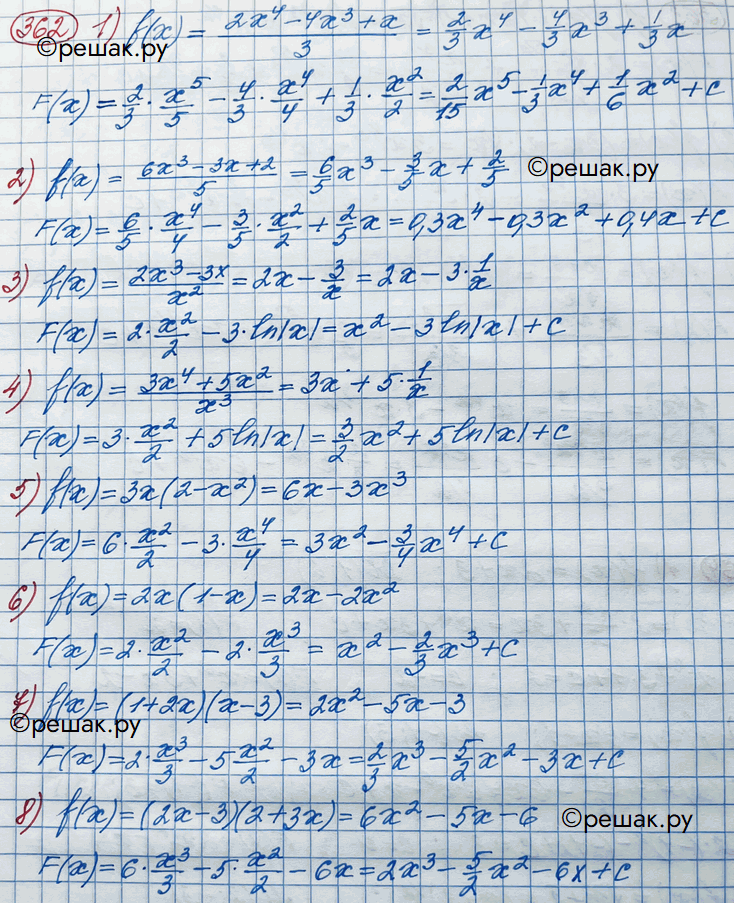 362 1) f(x) = (2x⁴ - 4x³ + x)/3 = 2/3 x⁴ - 4/3 x³ + 1/3 x
©решак.ру
F(x) = 2/3 · x⁵/5 - 4/3 · x⁴/4 + 1/3 · x²/2 = 2/15 x⁵ - 1/3 x⁴ + 1/6 x² + C
2) f(x) = (6x³ - 3x + 2)/5 = 6/5 x³ - 3/5 x + 2/5 ©решак.ру
F(x) = 6/5 · x⁴/4 - 3/5 · x²/2 + 2/5 x = 0,3x⁴ - 0,3x² + 0,4x + C
3) f(x) = (2x³ - 3x)/x² = 2x - 3/x = 2x - 3 · 1/x
F(x) = 2 · x²/2 - 3 · ln|x| = x² - 3 ln|x| + C
4) f(x) = (3x⁴ + 5x²)/x³ = 3x + 5 · 1/x
F(x) = 3 · x²/2 + 5 ln|x| = 3/2 x² + 5 ln|x| + C
5) f(x) = 3x(2 - x²) = 6x - 3x³
F(x) = 6 · x²/2 - 3 · x⁴/4 = 3x² - 3/4 x⁴ + C
6) f(x) = 2x(1 - x) = 2x - 2x²
F(x) = 2 · x²/2 - 2 · x³/3 = x² - 2/3 x³ + C
7) f(x) = (1 + 2x)(x - 3) = 2x² - 5x - 3
©решак.ру
F(x) = 2 · x³/3 - 5 x²/2 - 3x = 2/3 x³ - 5/2 x² - 3x + C
8) f(x) = (2x - 3)(2 + 3x) = 6x² - 5x - 6 ©решак.ру
F(x) = 6 · x³/3 - 5 · x²/2 - 6x = 2x³ - 5/2 x² - 6x + C